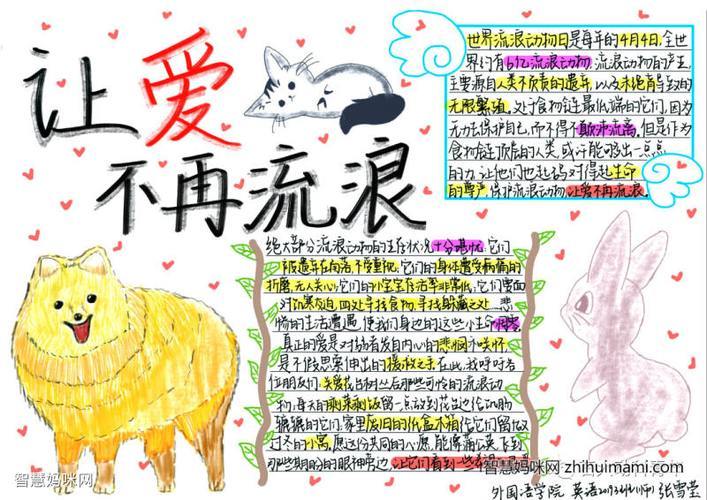 让爱
不再流浪
世界流浪动物日是每年的4月4日,全世
界约有6亿流浪动物,流浪动物的产生,
主要源自人类不负责的遗弃,以及未绝育导致的
无限繁殖。处于食物链最低端的它们,因为
无力去保护自己,而不得不颠沛流离。但是作为
食物链顶层的人类,或许能够出一点点
的力,让他们也起码对得起生命
的尊严。保护流浪动物,让爱不再流浪。
绝大部分流浪动物的生存状况十分堪忧,它们
被遗弃在角落,不受重视,它们的身体遭受病痛的
折磨,无人关心,它们的小宝宝存活率非常低,它们要面
对饥寒内迫,四处寻找食物,寻找躲藏之处……悲
惨的生活遭遇,使我们身边的这些小生命
真正的爱是对弱者发自内心的悲悯和关怀,
是不假思索伸出的援救之手。在此,我呼吁各
位朋友们,关爱花台树丛后那些可怜的流浪动
物,每天的剩菜剩饭留一点放到花台边给饥肠
辘辘的它们,家里废旧的纸盒木箱给它们留做
过冬的小窝。愿这份共同的心愿,能像蒲公英飞到
那些期盼的眼神旁边,让它们看到一些
智慧妈咪网
智慧妈咪网 zhihuimami.com
外国语学院 英语